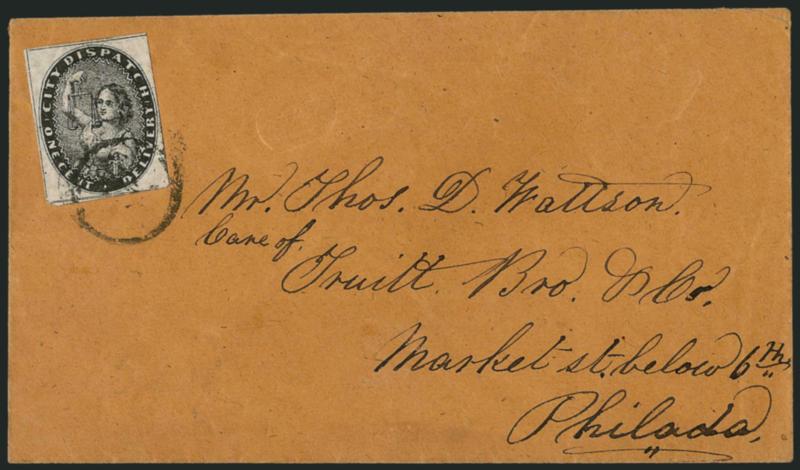 CITY DISPATCH
DELIVERY
ONE CENT.
Mr. Thos. D. Wattson.
Care of.
Truitt Bro. & Co.
Market st. below 6th
Philada.